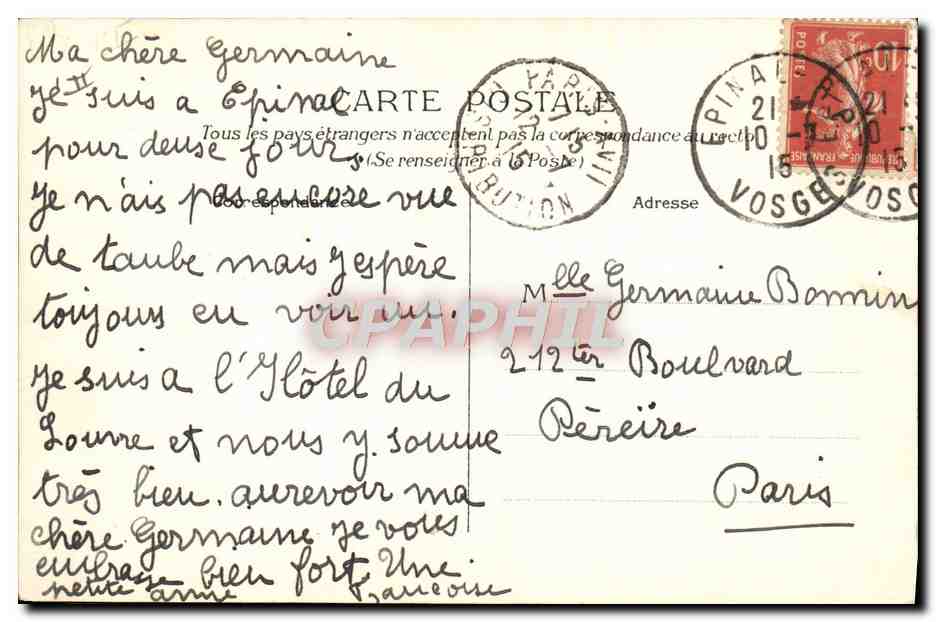 Ma chère Germaine
Je suis a Epinal
pour deuse jours
Je n'ais pas encore vue
de taube mais j'espère
toujours en voir un.
Je suis a l'Hôtel du
Louvre et nous y somme
très bien. aurevoir ma
chère Germaine Je vous
embrasse bien fort. Une
petite amie Francoise
CARTE POSTALE
Tous les pays étrangers n'acceptent pas la correspondance au recto
(Se renseigner à la Poste)
Correspondance
Adresse
Mlle Germaine Bonnin
212ter Boulvard
Péreïre
Paris
PARIS XVII
DISTRIBUTION
EPINAL
21
10 - 7
15
VOSGES
EPINAL
21
10 -
15
VOSGES
10c
POSTES
REPUBLIQUE FRANÇAISE
CPAPHIL